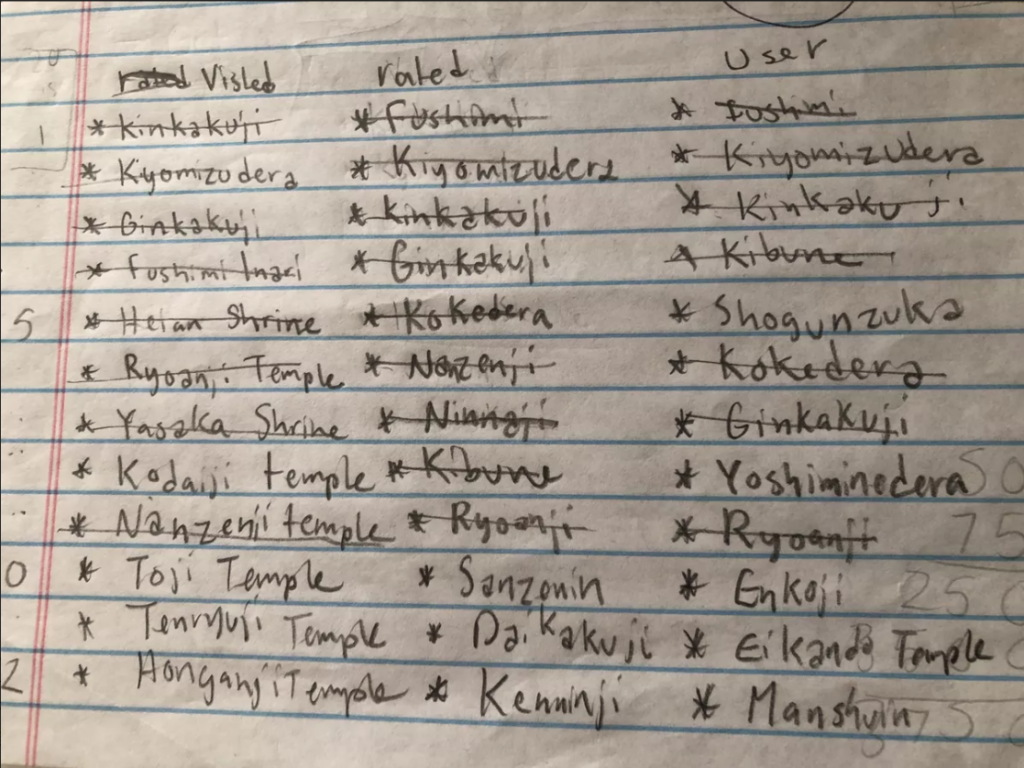 rated Visled rated User
* Kinkakuji * Fushimi * Fushimi
1 * Kyomizudera * Kiyomizudera * Kiyomizudera
* Ginkakuji * Kinkakuji * Kinkakuji
* Fushimi Inari * Ginkakuji * Kibune
5 * Heian Shrine * Kokedera * Shogunzuka
* Ryoanji Temple * Nanzenji * Kokedera
* Yasaka Shrine * Ninnaji * Ginkakuji
* Kodaiji temple * Kibune * Yoshiminedera 50
* Nanzenji temple * Ryoanji * Ryoanji 75
0 * Toji Temple * Sanzenin * Enkoji 250
* Tenryuji Temple * Daikakuji * Eikando Temple
2 * Honganji Temple * Kenninji * Manshuin 75